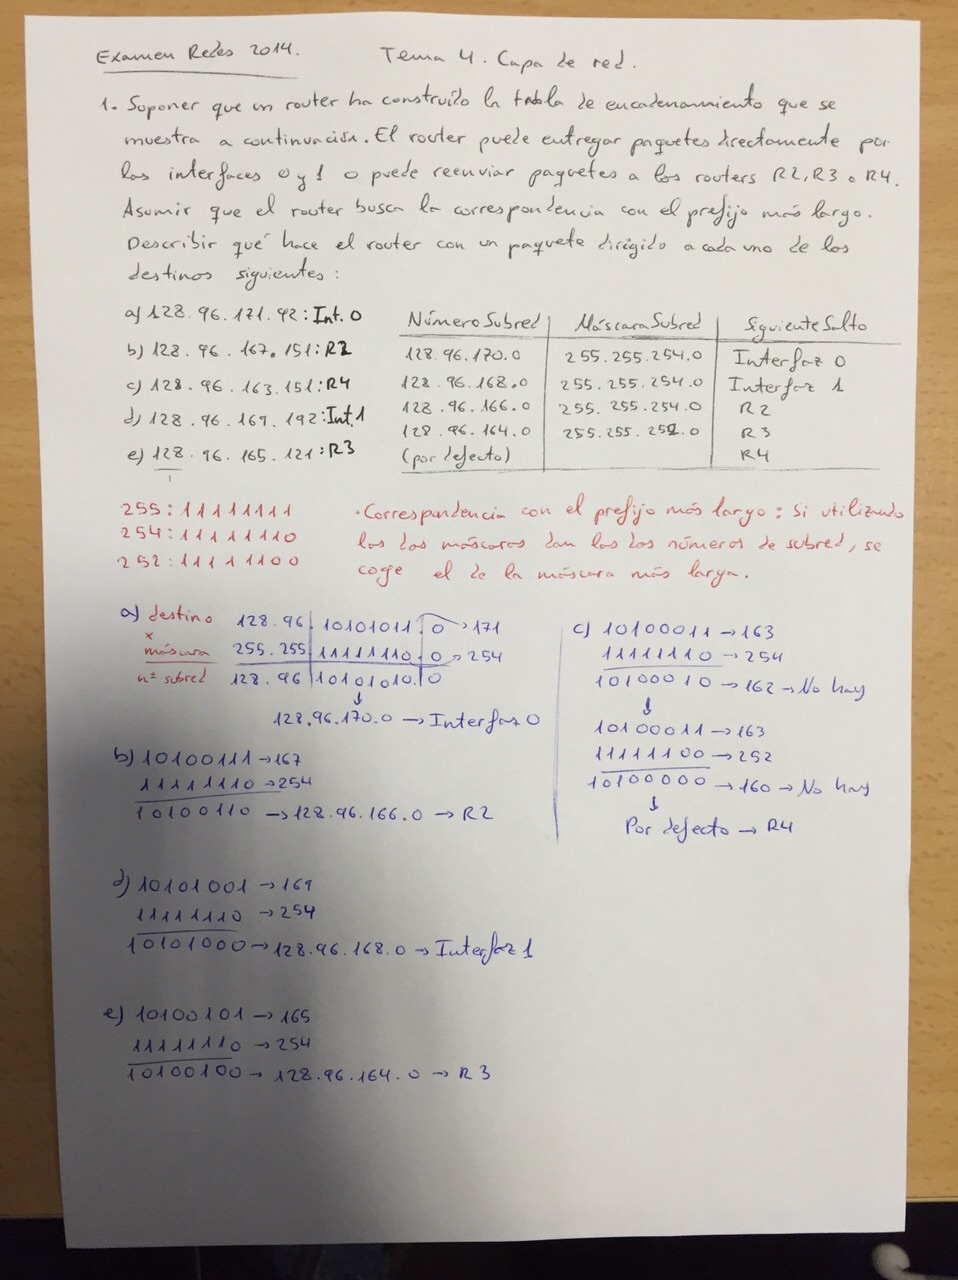 Examen Redes 2014. Tema 4. Capa de red.
1. Suponer que un router ha construido la tabla de encadenamiento que se
muestra a continuación. El router puede entregar paquetes directamente por
las interfaces 0 y 1 o puede reenviar paquetes a los routers R2, R3 o R4.
Asumir que el router busca la correspondencia con el prefijo más largo.
Describir qué hace el router con un paquete dirigido a cada uno de los
destinos siguientes:
a) 128.96.171.92: Int. 0
b) 128.96.167.151: R2
c) 128.96.163.151: R4
d) 128.96.169.192: Int. 1
e) 128.96.165.121: R3
Número Subred Máscara Subred Siguiente Salto
128.96.170.0 255.255.254.0 Interfaz 0
128.96.168.0 255.255.254.0 Interfaz 1
128.96.166.0 255.255.254.0 R2
128.96.164.0 255.255.252.0 R3
(por defecto) R4
255: 11111111
254: 11111110
252: 11111100
· Correspondencia con el prefijo más largo: Si utilizando
las dos máscaras dan los dos números de subred, se
coge el de la máscara más larga.
a) destino 128.96. 10101011.0 → 171
x
máscara 255.255 11111110.0 → 254
nº subred 128.96 10101010.0
↓
128.96.170.0 → Interfaz 0
b) 10100111 → 167
11111110 → 254
10100110 → 128.96.166.0 → R2
c) 10100011 → 163
11111110 → 254
10100010 → 162 → No hay
↓
10100011 → 163
11111100 → 252
10100000 → 160 → No hay
↓
Por defecto → R4
d) 10101001 → 169
11111110 → 254
10101000 → 128.96.168.0 → Interfaz 1
e) 10100101 → 165
11111110 → 254
10100100 → 128.96.164.0 → R3